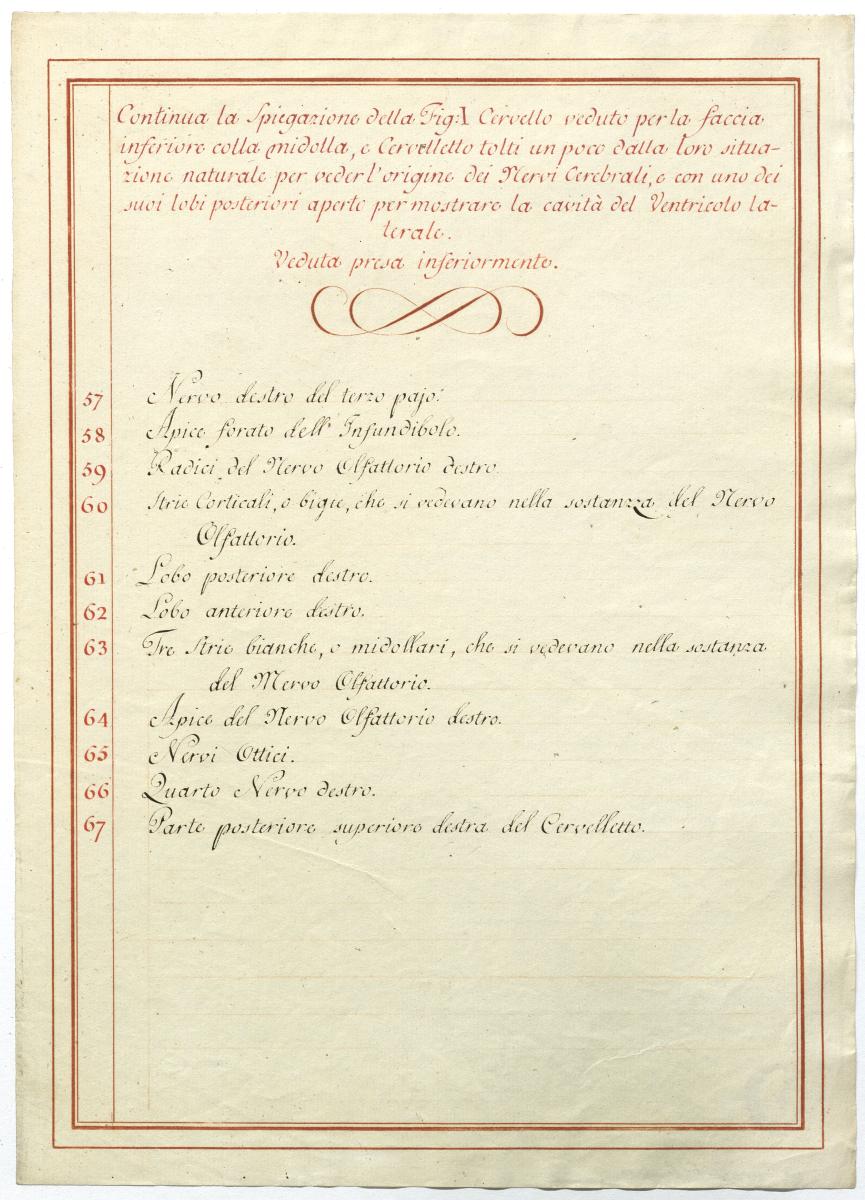 Continua la Spiegazione della Fig: I Cervello veduto per la faccia
inferiore colla midolla, e Cervelletto tolti un poco dalla loro situa-
zione naturale per veder l'origine dei Nervi Cerebrali, e con uno dei
suoi lobi posteriori aperto per mostrare la cavità del Ventricolo la-
terale.
Veduta presa inferiormente.
57 Nervo destro del terzo pajo.
58 Apice forato dell' Infundibolo.
59 Radici del Nervo Olfattorio destro.
60 Strie Corticali, o bigie, che si vedevano nella sostanza del Nervo
Olfattorio.
61 Lobo posteriore destro.
62 Lobo anteriore destro.
63 Tre Strie bianche, o midollari, che si vedevano nella sostanza
del Nervo Olfattorio.
64 Apice del Nervo Olfattorio destro.
65 Nervi Ottici.
66 Quarto Nervo destro.
67 Parte posteriore superiore destra del Cervelletto.